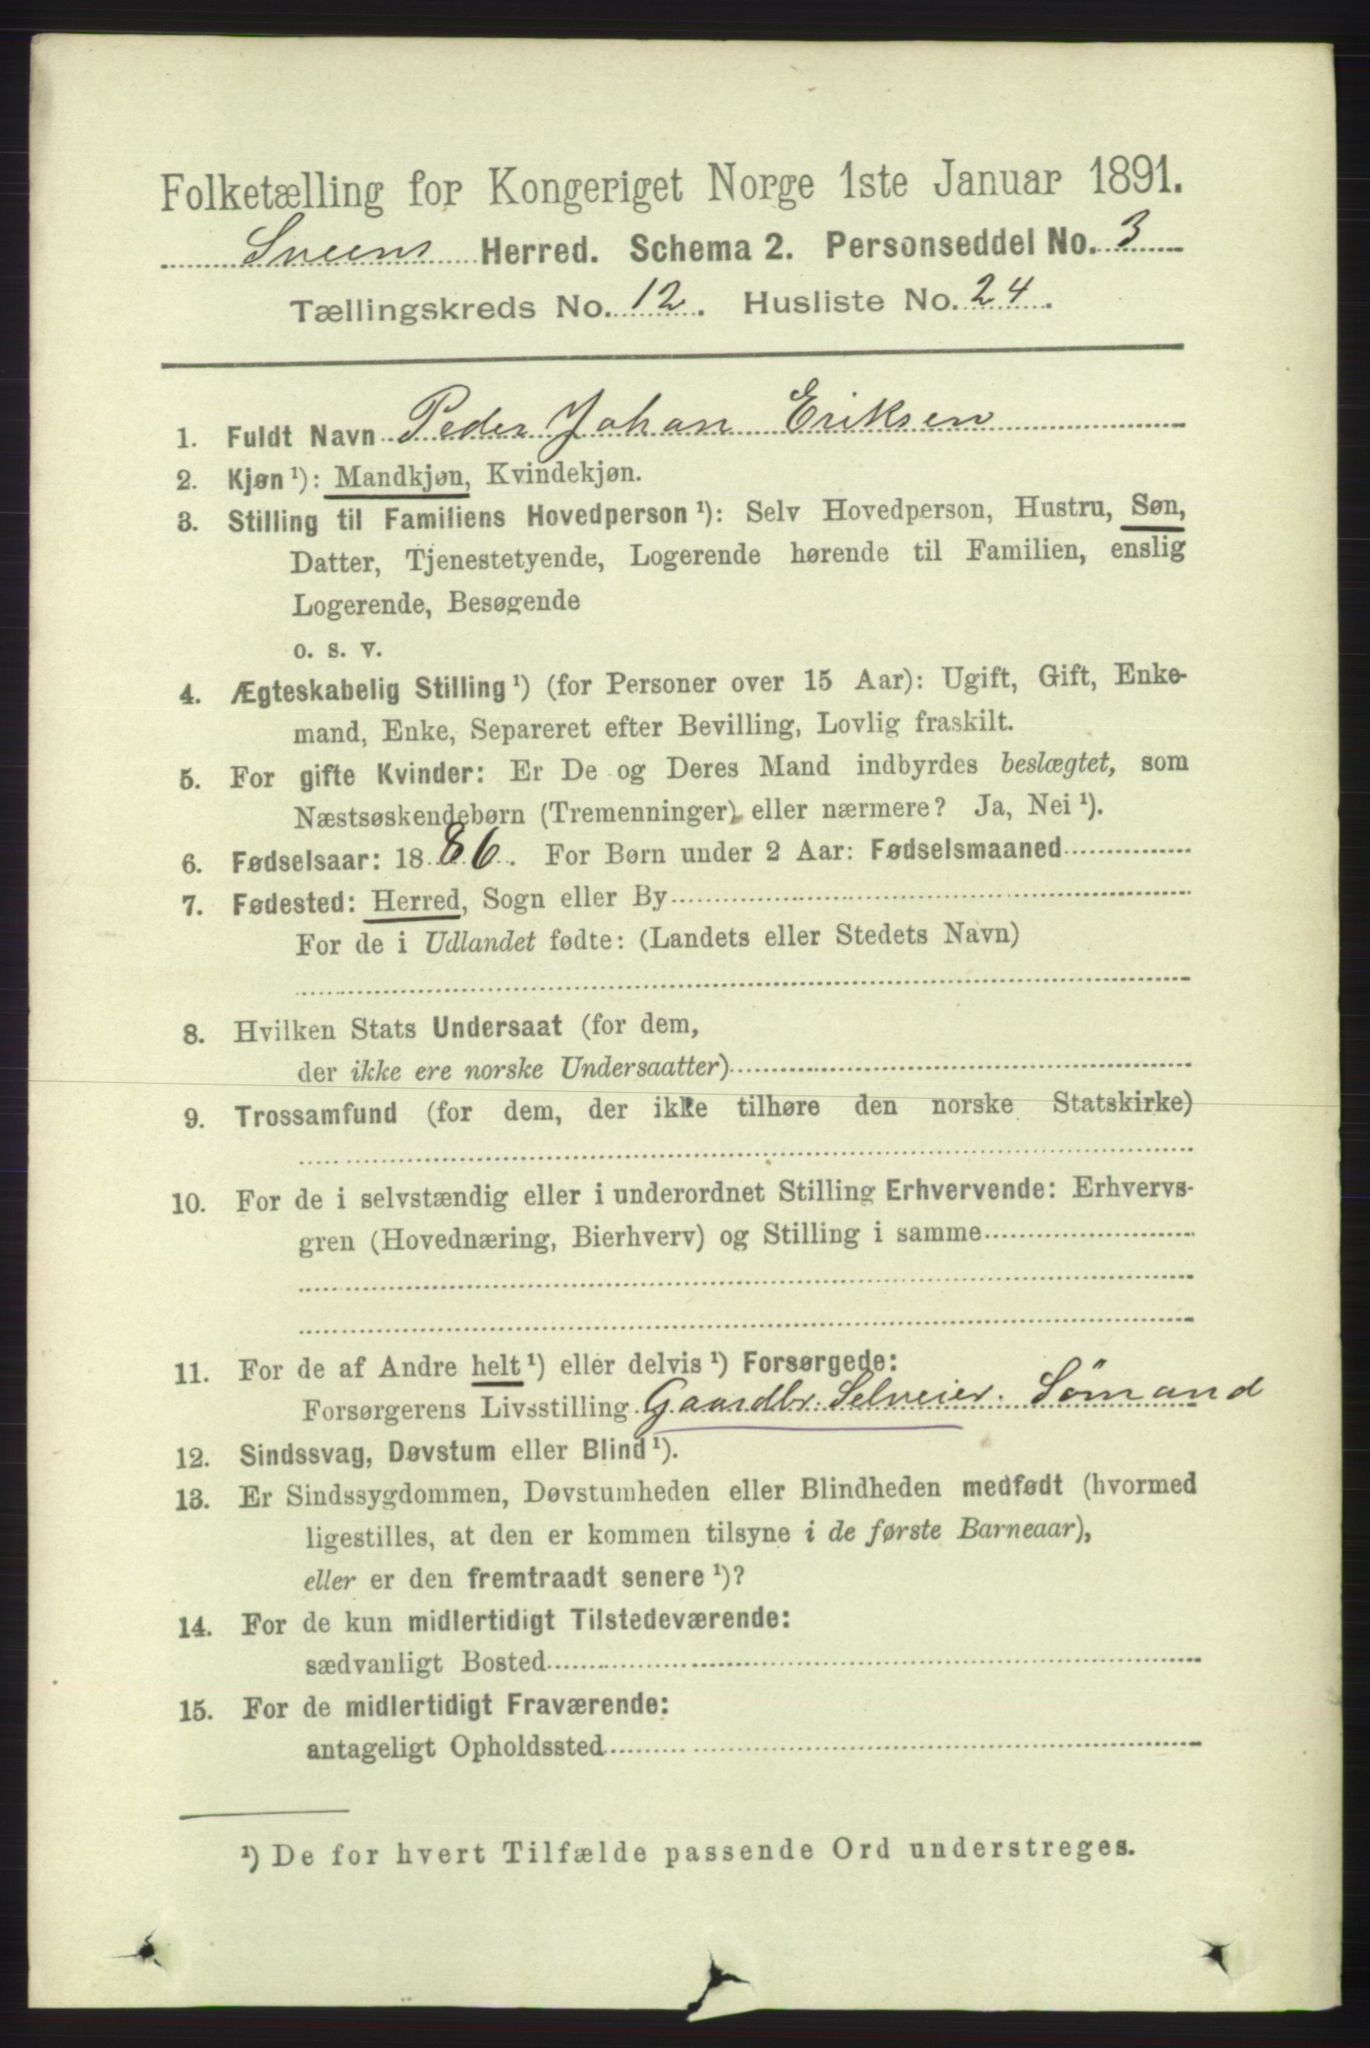 Folketælling for Kongeriget Norge 1ste Januar 1891.
Sveens Herred. Schema 2. Personseddel No. 3
Tællingskreds No. 12. Husliste No. 24.
1. Fuldt Navn Peder Johan Eriksen
2. Kjøn ¹): Mandkjøn, Kvindekjøn.
3. Stilling til Familiens Hovedperson ¹): Selv Hovedperson, Hustru, Søn,
Datter, Tjenestetyende, Logerende hørende til Familien, enslig
Logerende, Besøgende
o. s. v.
4. Ægteskabelig Stilling ¹) (for Personer over 15 Aar): Ugift, Gift, Enke-
mand, Enke, Separeret efter Bevilling, Lovlig fraskilt.
5. For gifte Kvinder: Er De og Deres Mand indbyrdes beslægtet, som
Næstsøskendebørn (Tremenninger) eller nærmere? Ja, Nei ¹).
6. Fødselsaar: 1886. For Børn under 2 Aar: Fødselsmaaned
7. Fødested: Herred, Sogn eller By
For de i Udlandet fødte: (Landets eller Stedets Navn)
8. Hvilken Stats Undersaat (for dem,
der ikke ere norske Undersaatter)
9. Trossamfund (for dem, der ikke tilhøre den norske Statskirke)
10. For de i selvstændig eller i underordnet Stilling Erhvervende: Erhvervs-
gren (Hovednæring, Bierhverv) og Stilling i samme
11. For de af Andre helt ¹) eller delvis ¹) Forsørgede:
Forsørgerens Livsstilling Gaardbr. Selveier. Sömand
12. Sindssvag, Døvstum eller Blind ¹).
13. Er Sindssygdommen, Døvstumheden eller Blindheden medfødt (hvormed
ligestilles, at den er kommen tilsyne i de første Barneaar),
eller er den fremtraadt senere ¹)?
14. For de kun midlertidigt Tilstedeværende:
sædvanligt Bosted
15. For de midlertidigt Fraværende:
antageligt Opholdssted
¹) De for hvert Tilfælde passende Ord understreges.